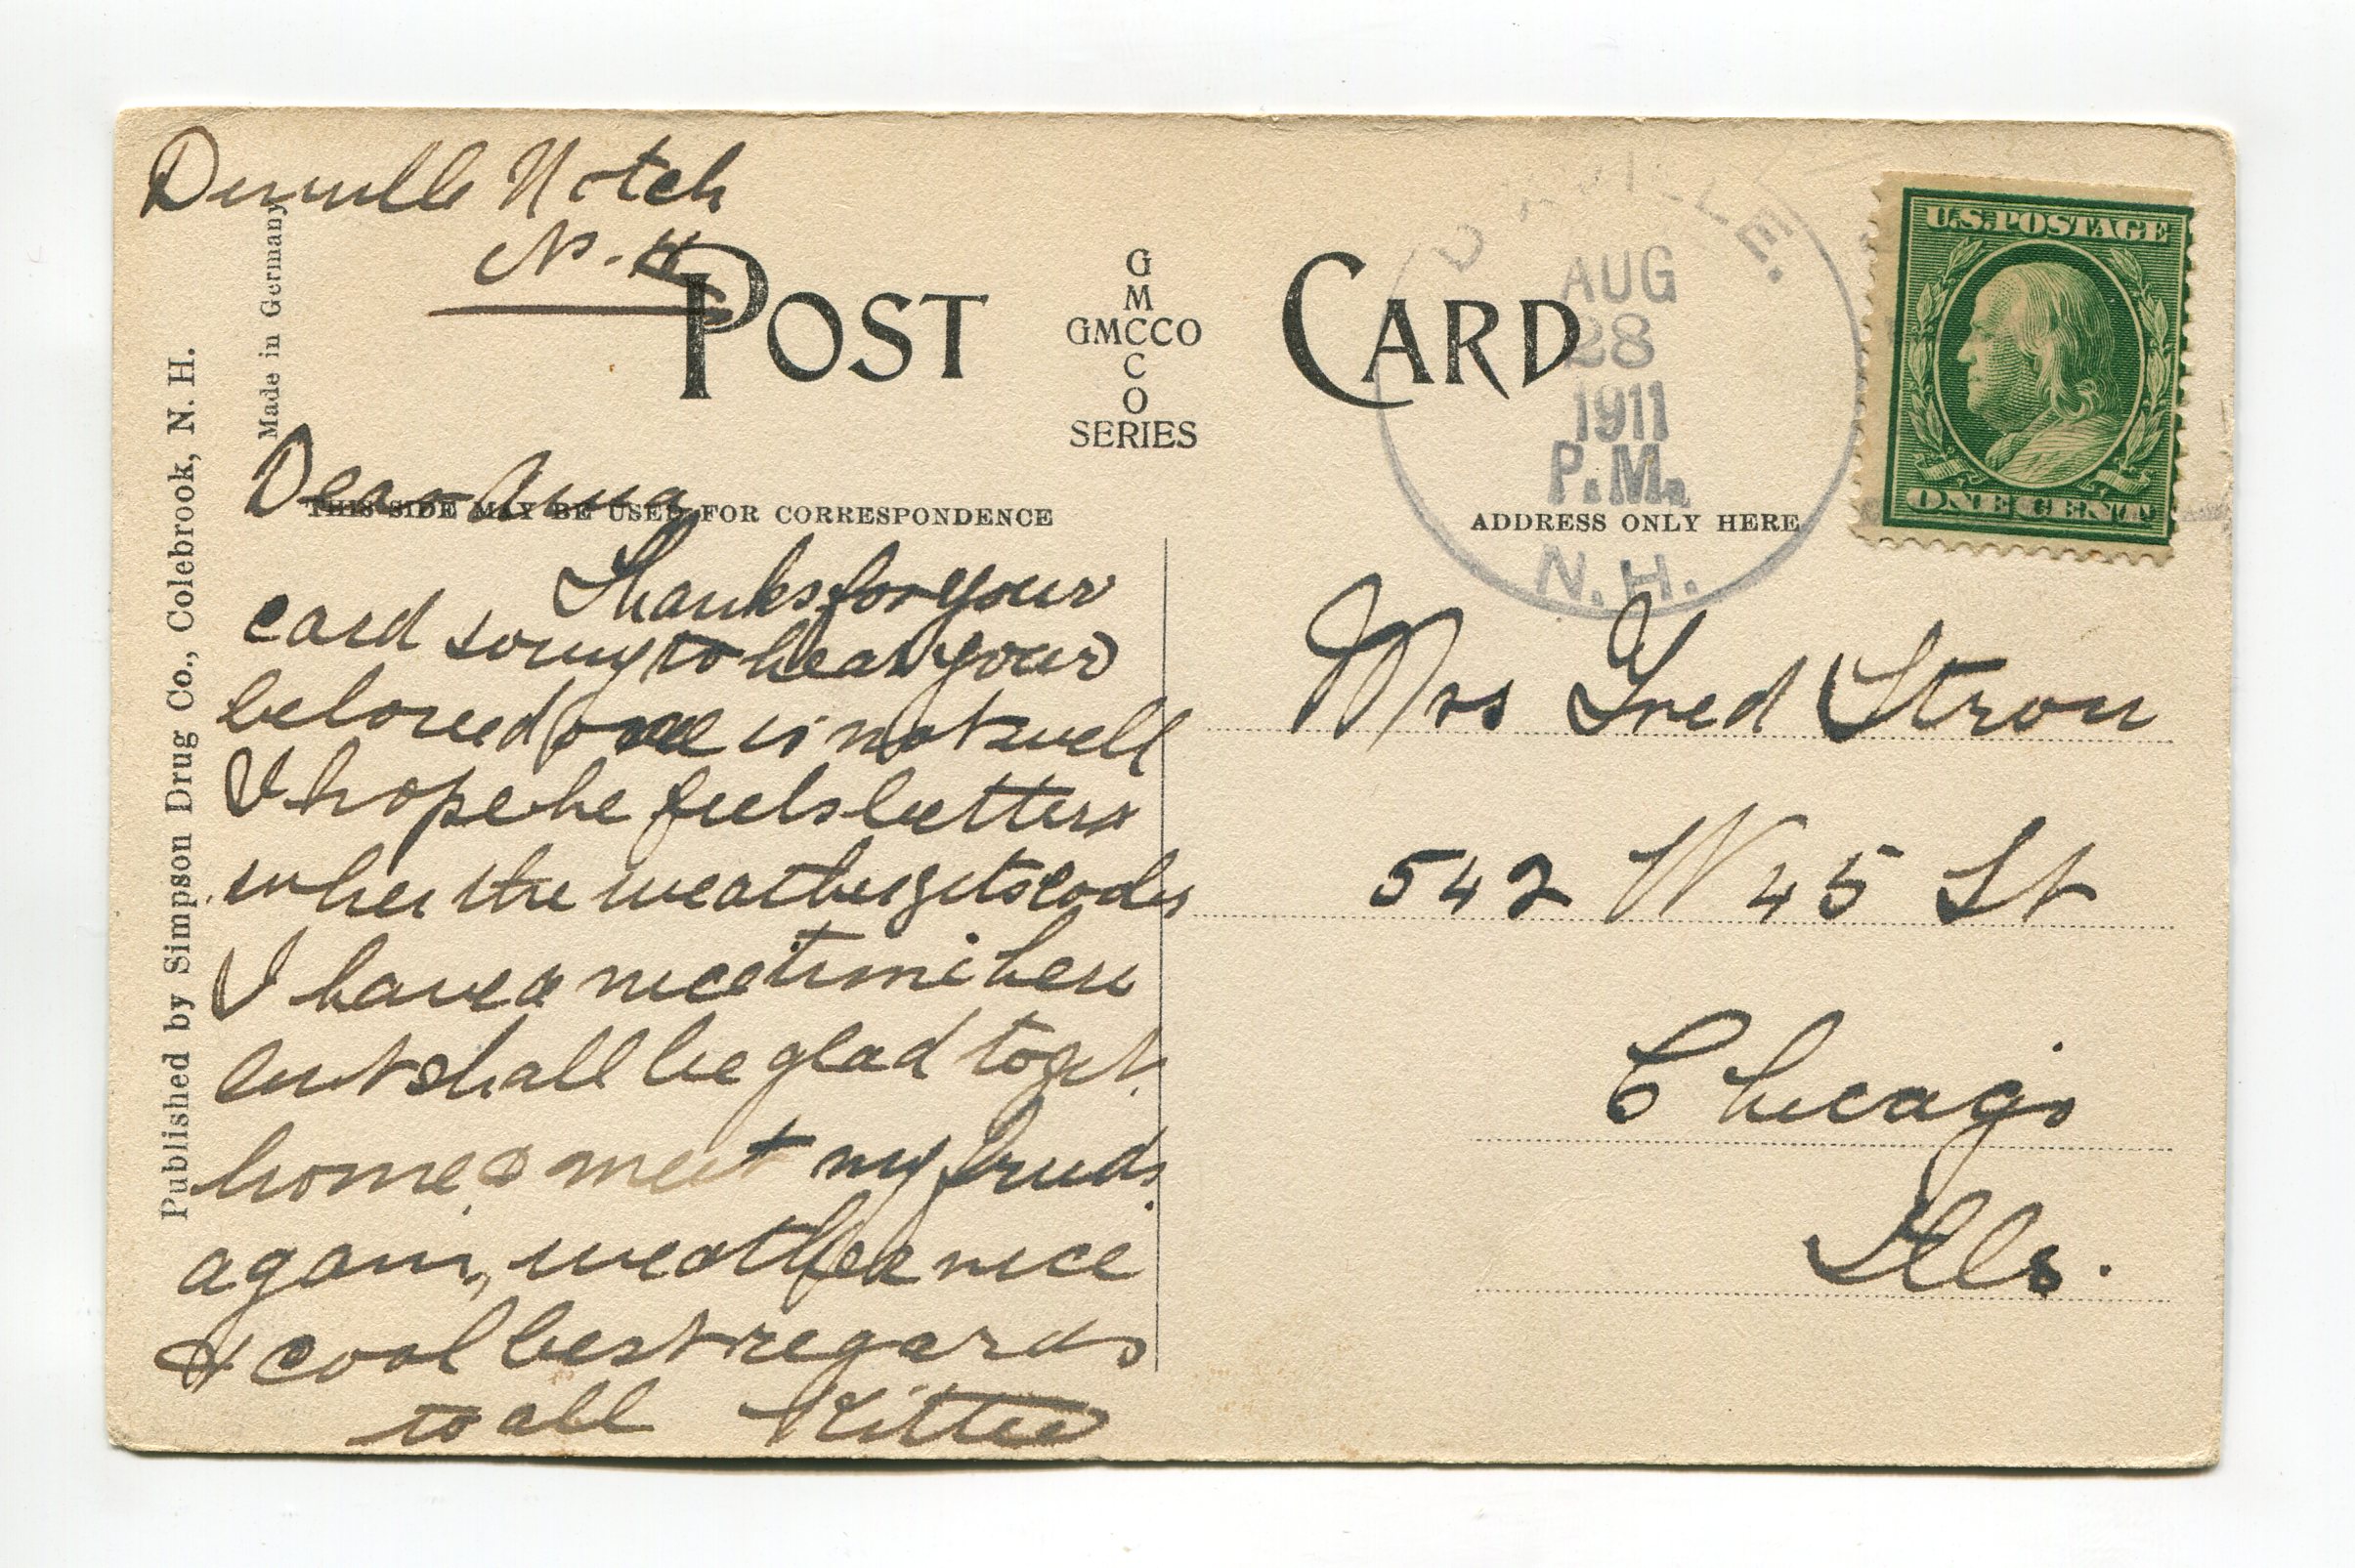 Notch
N. H
Made in Germany
Published by Simpson Drug Co., Colebrook, N. H.
POST CARD
G
M
GMCCO
C
O
SERIES
U.S. POSTAGE
ONE CENT
AUG
28
1911
P.M.
N. H.
THIS SIDE MAY BE USED FOR CORRESPONDENCE
ADDRESS ONLY HERE
Dear
Thanks for your
card sorry to hear your
beloved one is not well
I hope he feels better
when the weather gets cooler
I have a nice time here
but shall be glad to get
home & meet my friends
again, weather nice
& cool best regards
to all Kittie
Mrs Fred Strou
542 W 45 St
Chicago
Ills.